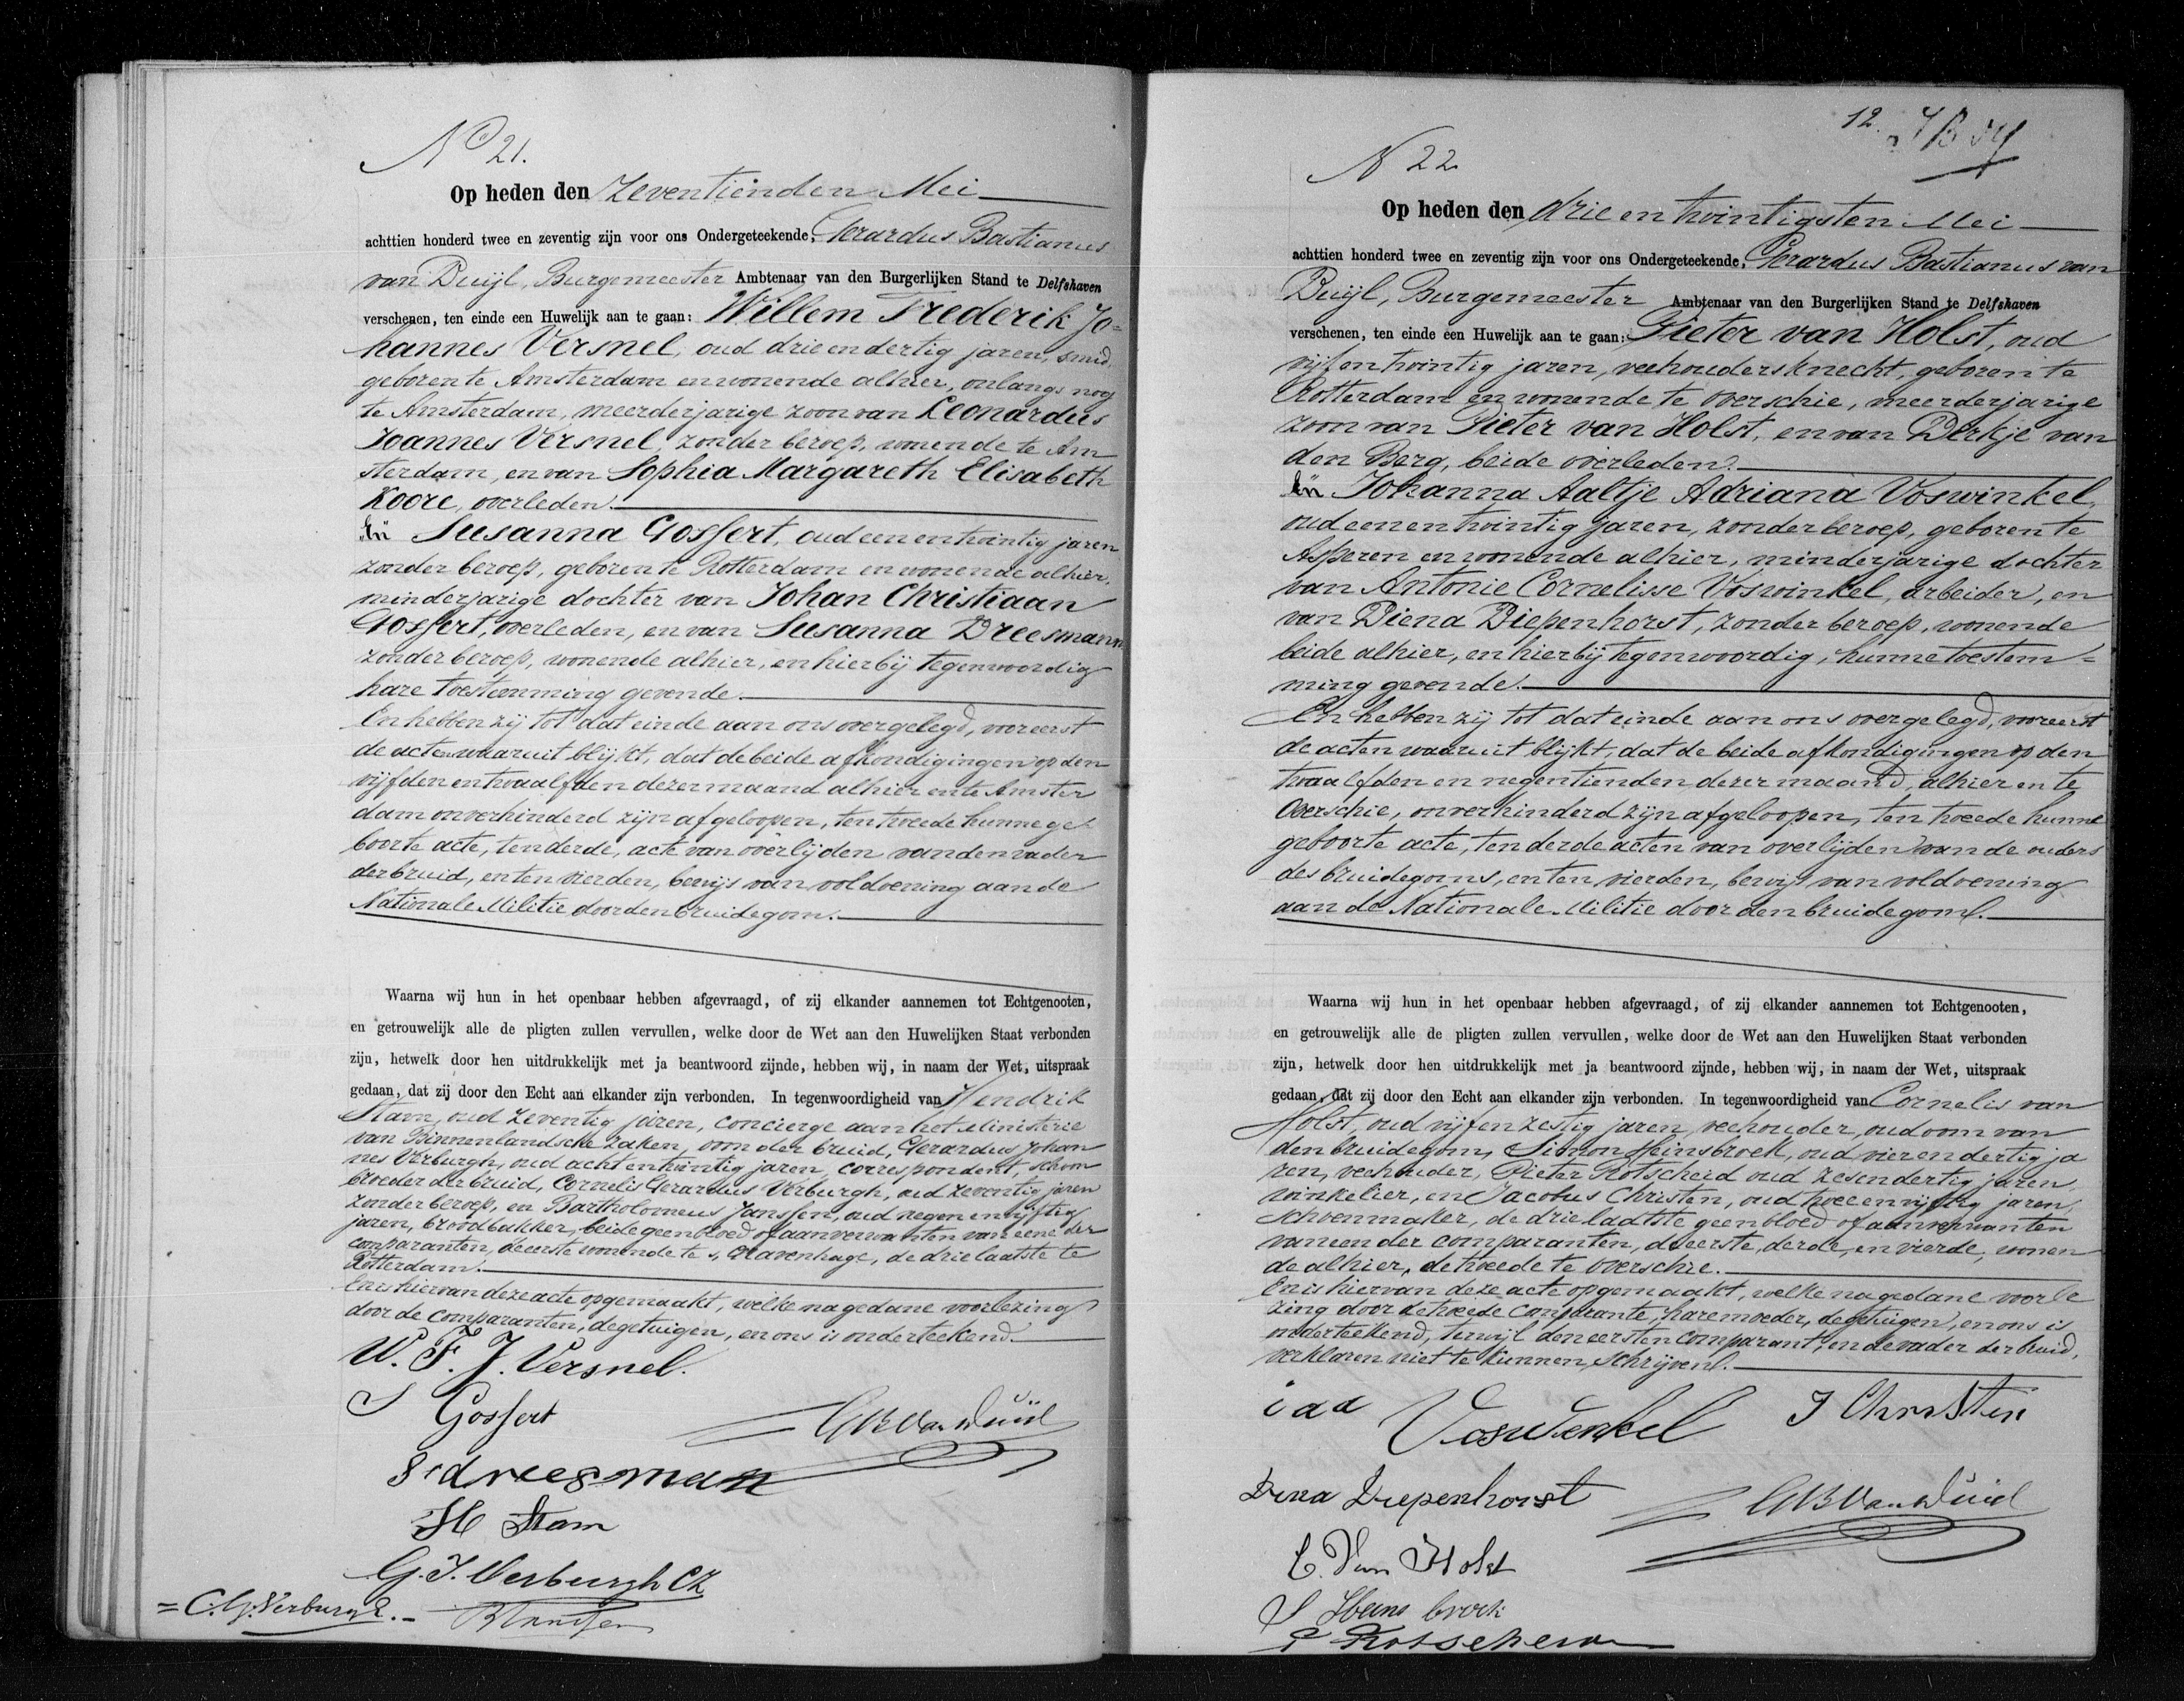 No 21.
Op heden den zeventienden Mei
achttien honderd twee en zeventig zijn voor ons Ondergeteekende, Gerardus Bastianus
van Duijl, Burgemeester Ambtenaar van den Burgerlijken Stand te Delfshaven
verschenen, ten einde een Huwelijk aan te gaan: Willem Frederik Jo=
hannes Versnel, oud drie en dertig jaren, smid,
geboren te Amsterdam en wonende alhier, onlangs nog
te Amsterdam, meerderjarige zoon van Leonardus
Joannes Versnel, zonder beroep, wonende te Am
sterdam, en van Sophia Margareth Elisabeth
Koore, overleden.
En Susanna Gossert, oud een en twintig jaren
zonder beroep, geboren te Rotterdam en wonende alhier,
minderjarige dochter van Johan Christiaan
Gossert, overleden, en van Susanna Dreesmann
zonder beroep, wonende alhier, en hierbij tegenwoordig
hare toestemming gevende.
En hebben zij tot dat einde aan ons overgelegd, vooreerst
de acten waaruit blijkt, dat de beide afkondigingen op den
vijfden en twaalfden dezer maand alhier en te Amster
dam onverhinderd zijn afgeloopen, ten tweede hunne ge=
boorte acte, ten derde, acte van overlijden van den vader
der bruid, en ten vierden, bewijs van voldoening aan de
Nationale Militie door den bruidegom.
Waarna wij hun in het openbaar hebben afgevraagd, of zij elkander aannemen tot Echtgenooten,
en getrouwelijk alle de pligten zullen vervullen, welke door de Wet aan den Huwelijken Staat verbonden
zijn, hetwelk door hen uitdrukkelijk met ja beantwoord zijnde, hebben wij, in naam der Wet, uitspraak
gedaan, dat zij door den Echt aan elkander zijn verbonden. In tegenwoordigheid van Hendrik
Stam, oud zeventig jaren, concierge aan het Ministerie
van Binnenlandsche zaken, oom der bruid, Gerardus Johan
nes Verburgh, oud acht en twintig jaren, correspondent, schoon
broeder der bruid, Cornelis Gerardus Verburgh, oud zeventig jaren
zonder beroep, en Bartholomeus Janssen, oud negen en vijftig
jaren, broodbakker, beide geen bloed of aanverwanten van eene der
comparanten, de eerste wonende te s Gravenhage, de drie laatste te
Rotterdam.
En is hiervan deze acte opgemaakt, welke na gedane voorlezing
door de comparanten, de getuigen, en ons is onderteekend.
W. F. J. Versnel.
S Gossert
GB van Duijl
S dreesman
H Stam
G. J. Verburgh Cz
= C. G. Verburgh. -
B Janssen
12.
N 22
Op heden den drie en twintigsten Mei
achttien honderd twee en zeventig zijn voor ons Ondergeteekende, Gerardus Bastianus van
Duijl, Burgemeester Ambtenaar van den Burgerlijken Stand te Delfshaven
verschenen, ten einde een Huwelijk aan te gaan: Pieter van Holst, oud
vijf en twintig jaren, veehoudersknecht, geboren te
Rotterdam en wonende te Overschie, meerderjarige
zoon van Pieter van Holst, en van Derkje van
den Berg, beide overleden.
En Johanna Aaltje Adriana Voswinkel,
oud een en twintig jaren, zonder beroep, geboren te
Asperen en wonende alhier, minderjarige dochter
van Antonie Cornelisse Voswinkel, arbeider, en
van Diena Diepenhorst, zonder beroep, wonende
beide alhier, en hierbij tegenwoordig, hunne toestem=
ming gevende.
En hebben zij tot dat einde aan ons overgelegd, vooreerst
de acten waaruit blijkt, dat de beide afkondigingen op den
twaalfden en negentienden dezer maand, alhier en te
Overschie, onverhinderd zijn afgeloopen, ten tweede hunne
geboorte acte, ten derde acten van overlijden van de ouders
des bruidegoms, en ten vierden, bewijs van voldoening
aan de Nationale Militie door den bruidegom.
Waarna wij hun in het openbaar hebben afgevraagd, of zij elkander aannemen tot Echtgenooten,
en getrouwelijk alle de pligten zullen vervullen, welke door de Wet aan den Huwelijken Staat verbonden
zijn, hetwelk door hen uitdrukkelijk met ja beantwoord zijnde, hebben wij, in naam der Wet, uitspraak
gedaan, dat zij door den Echt aan elkander zijn verbonden. In tegenwoordigheid van Cornelis van
Holst, oud vijf en zestig jaren, veehouder, oud oom van
den bruidegom, Simon Heinsbroek, oud vier en dertig ja
ren, veehouder, Pieter Rotscheid oud zes en dertig jaren,
winkelier, en Jacobus Christen, oud twee en vijftig jaren,
schoenmaker, de drie laatste geen bloed of aanverwanten
van een der comparanten, de eerste, derde, en vierde, wonen
de alhier, de tweede te Overschie.
En is hiervan deze acte opgemaakt, welke na gedane voorle
zing door de tweede comparante, hare moeder, de getuigen, en ons is
onderteekend, terwijl den eersten comparant, en de vader der bruid,
verklaren niet te kunnen schrijven.
i a a Voswenkel
J Christen
Dena Diepenhorst
GB van Duijl
C. Van Holst
S Heins broek
P Rotscheid